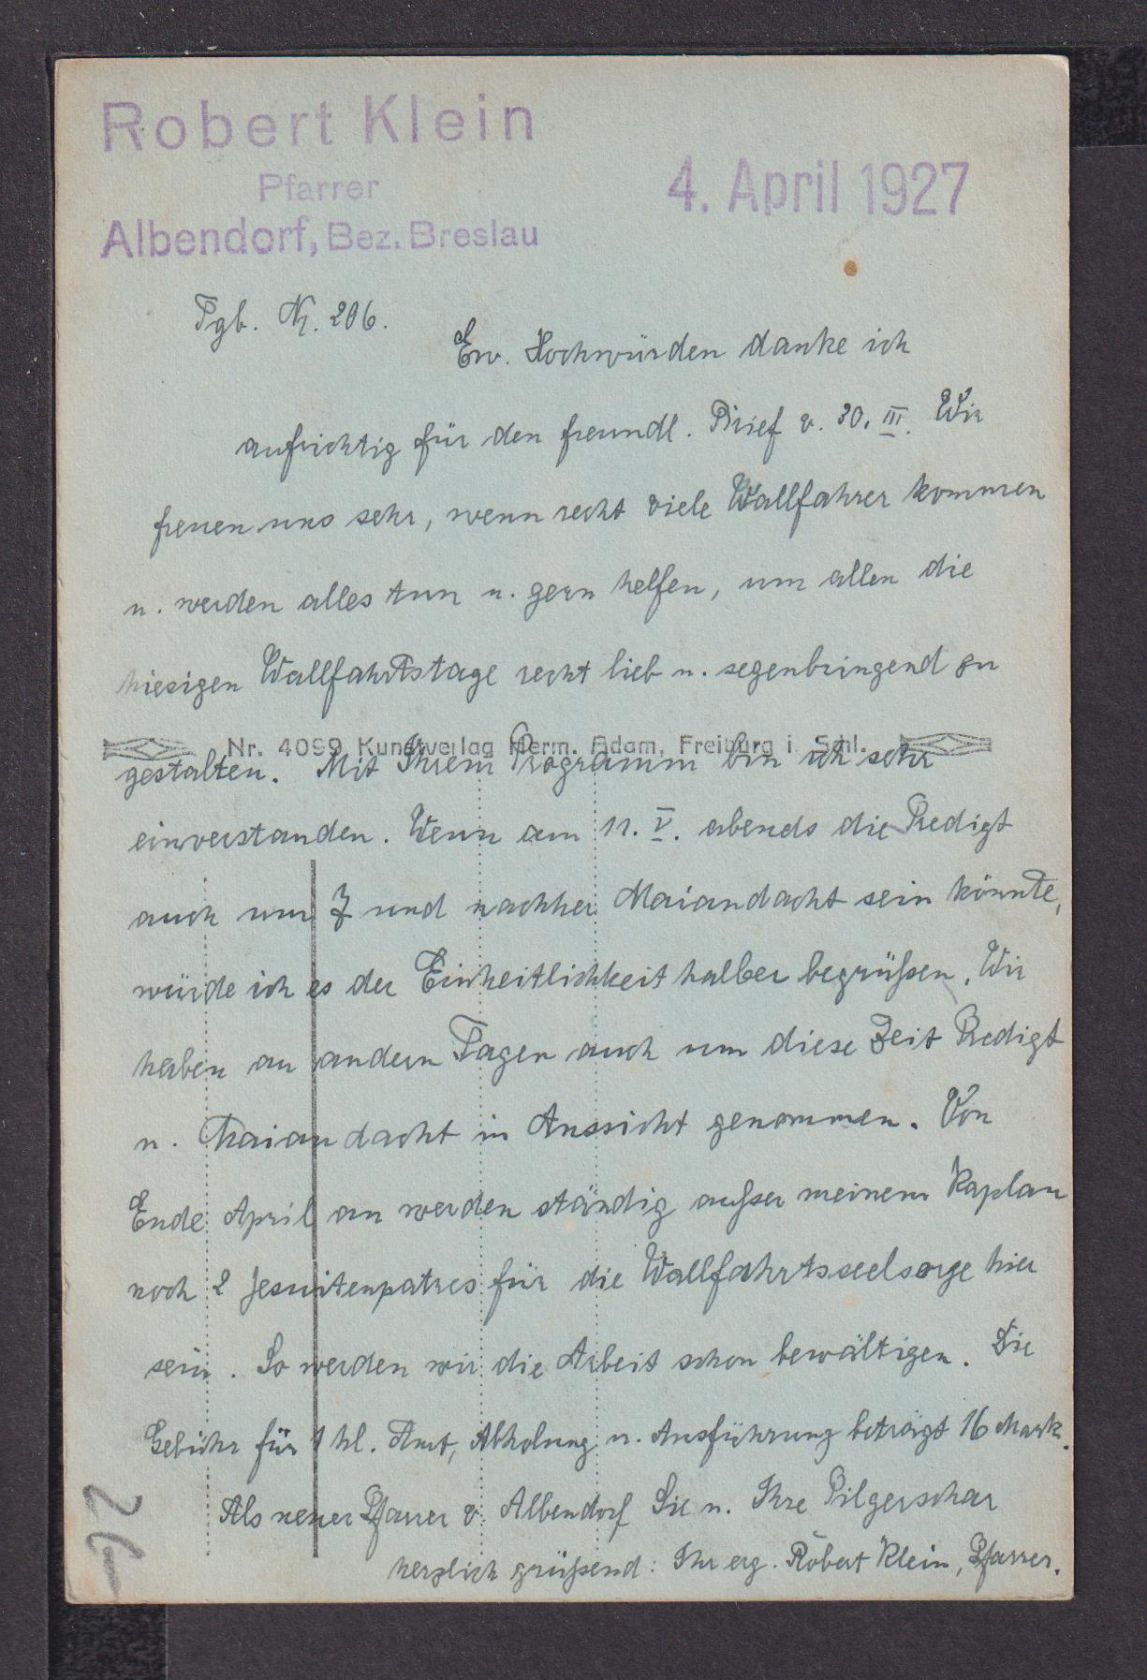 Robert Klein
Pfarrer
Albendorf, Bez. Breslau
4. April 1927
Tgb. Nr. 206.
Ew. Hochwürden danke ich
aufrichtig für den freundl. Brief v. 30. III. Wir
freuen uns sehr, wenn recht viele Wallfahrer kommen
u. werden alles tun u. gern helfen, um allen die
hiesigen Wallfahrtstage recht lieb u. segenbringend zu
Nr. 4099 Kunstverlag Herm. Adam, Freiburg i. Schl.
gestalten. Mit Ihrem Programm bin ich sehr
einverstanden. Wenn am 11. V. abends die Predigt
auch um 7 und nachher Maiandacht sein könnte,
würde ich es der Einheitlichkeit halber begrüßen. Wir
haben an andern Tagen auch um diese Zeit Predigt
u. Maiandacht in Aussicht genommen. Von
Ende April an werden ständig außer meinem Kaplan
noch 2 Jesuitenpatres für die Wallfahrtsseelsorge hier
sein. So werden wir die Arbeit schon bewältigen. Die
Gebühr für 1 hl. Amt, Abholung u. Ausführung beträgt 16 Mark.
Als neuer Pfarrer v. Albendorf Sie u. Ihre Pilgerschar
herzlich grüßend: Ihr erg. Robert Klein, Pfarrer.